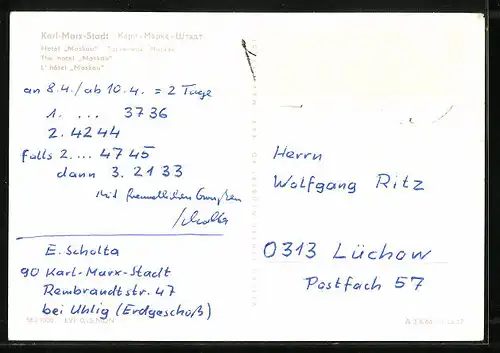 Karl-Marx-Stadt · Карл-Маркс-Штадт
Hotel „Moskau“
The hotel „Moskau“
L'hôtel „Moskau“
an 8.4./ab 10.4. = 2 Tage
1. ... 3736
2. 4244
falls 2.... 4745
dann 3. 2133
Mit freundlichen Grüßen
Scholta
E. Scholta
90 Karl-Marx-Stadt
Rembrandtstr. 47
bei Uhlig (Erdgeschoß)
Herrn
Wolfgang Ritz
0313 Lüchow
Postfach 57